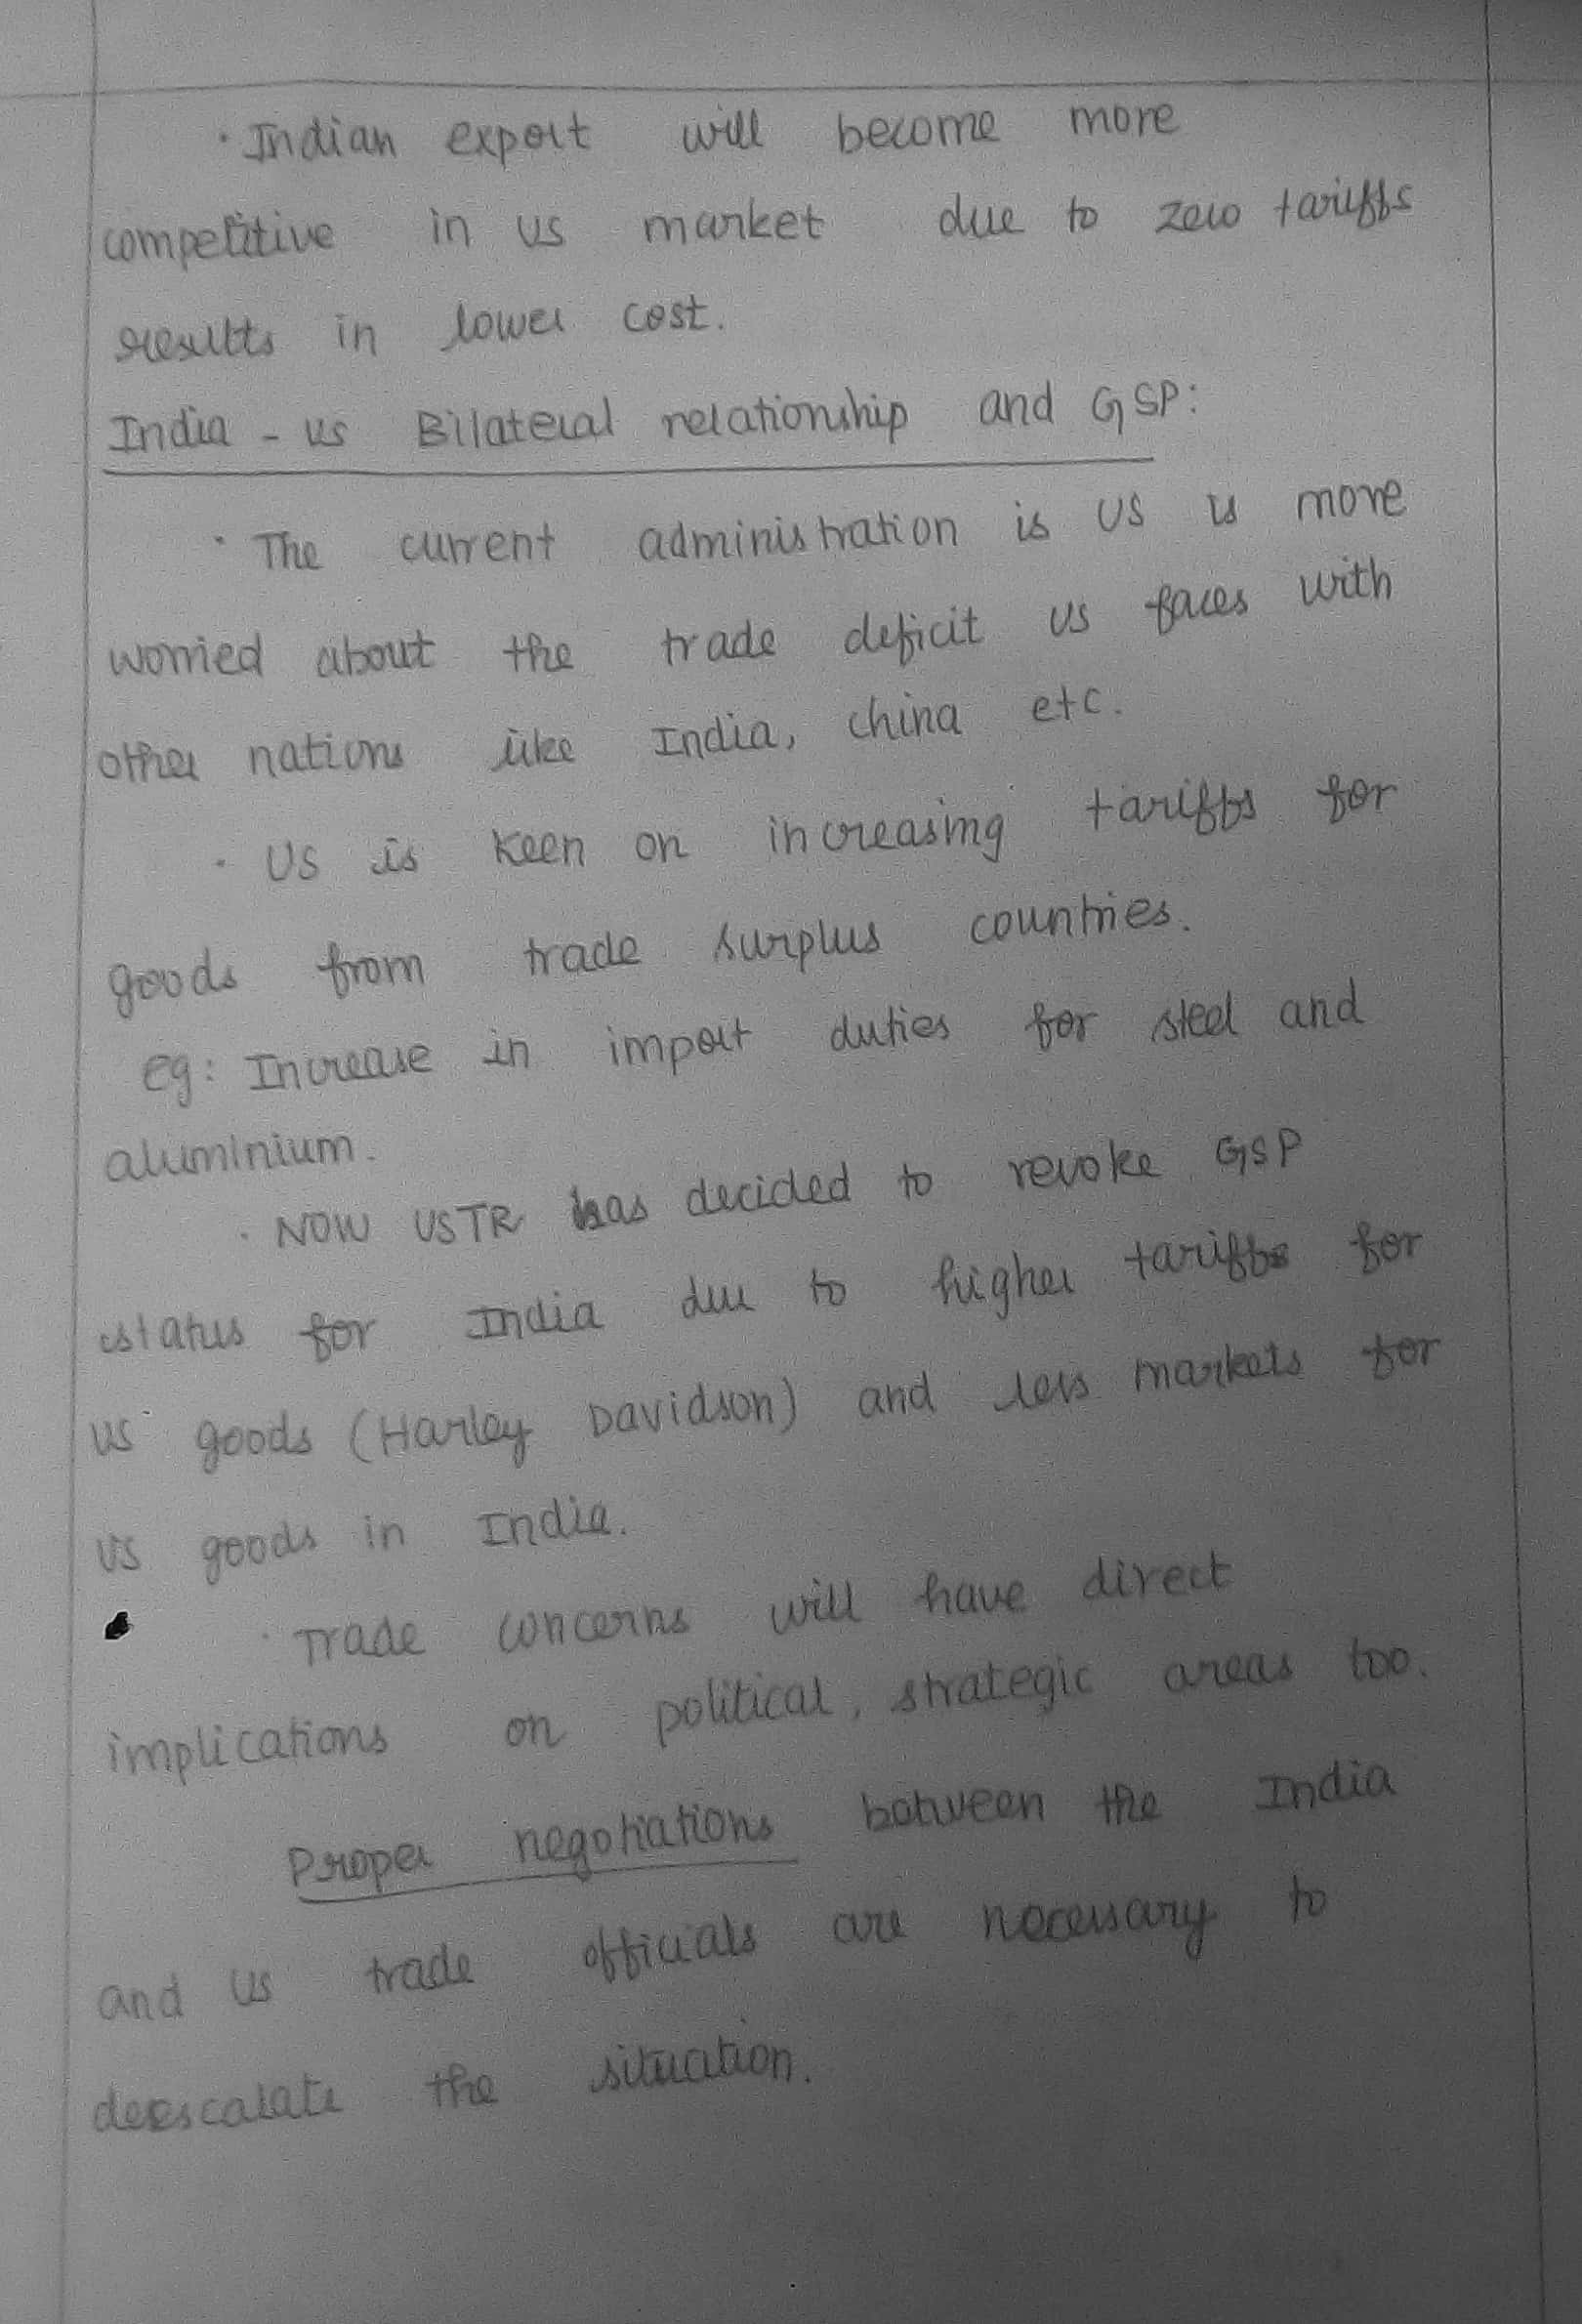 · Indian export will become more
competitive in US market due to zero tariffs
results in lower cost.
India - US Bilateral relationship and GSP:
· The current administration is US is more
worried about the trade deficit US faces with
other nations like India, China etc.
· US is keen on increasing tariffs for
goods from trade surplus countries.
eg: Increase in import duties for steel and
aluminium.
· NOW USTR has decided to revoke GSP
status for India due to higher tariffs for
US goods (Harley Davidson) and less markets for
US goods in India.
· Trade concerns will have direct
implications on political, strategic areas too.
Proper negotiations between the India
and US trade officials are necessary to
deescalate the situation.